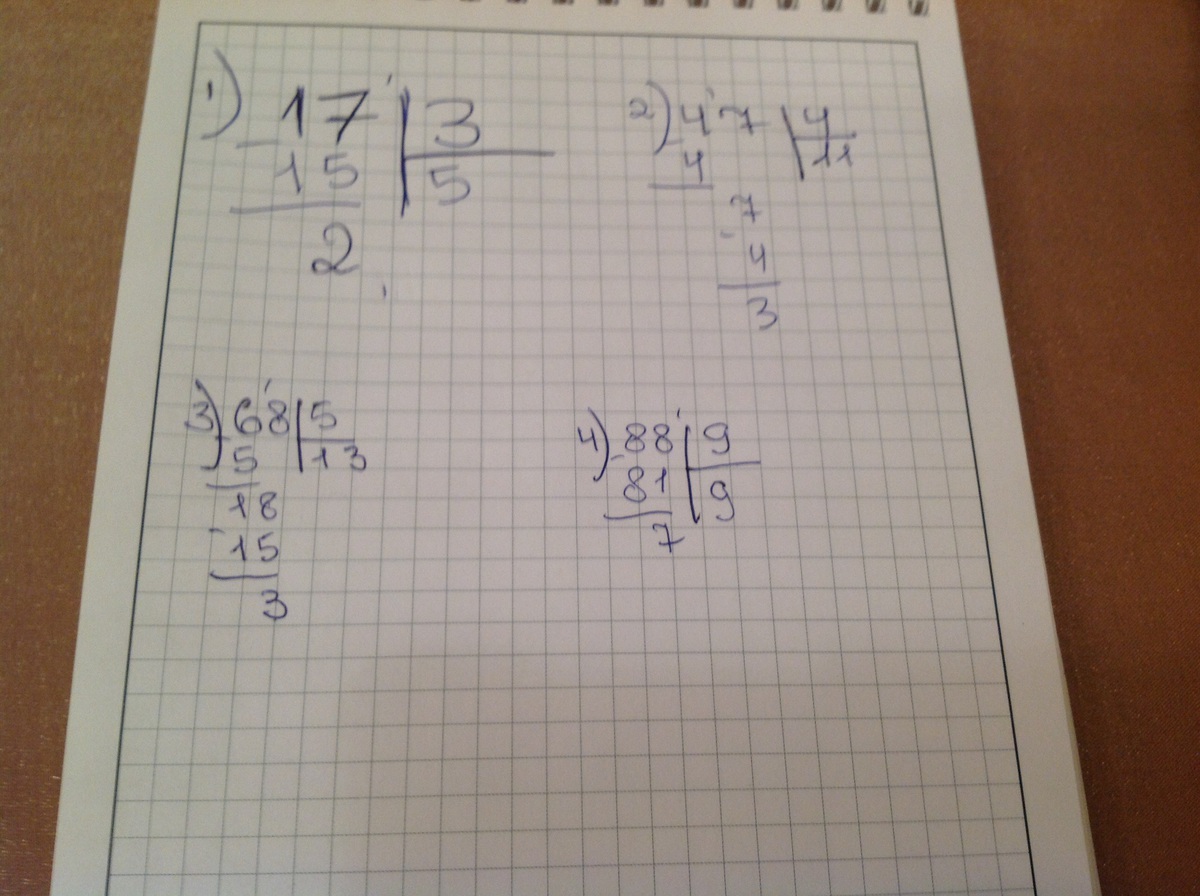 1) 17 | 3
- 15 | 5
2
2) 47 | 4
- 4 | 11
7
- 4
3
3) 68 | 5
- 5 | 13
18
- 15
3
4) 88 | 9
- 81 | 9
7